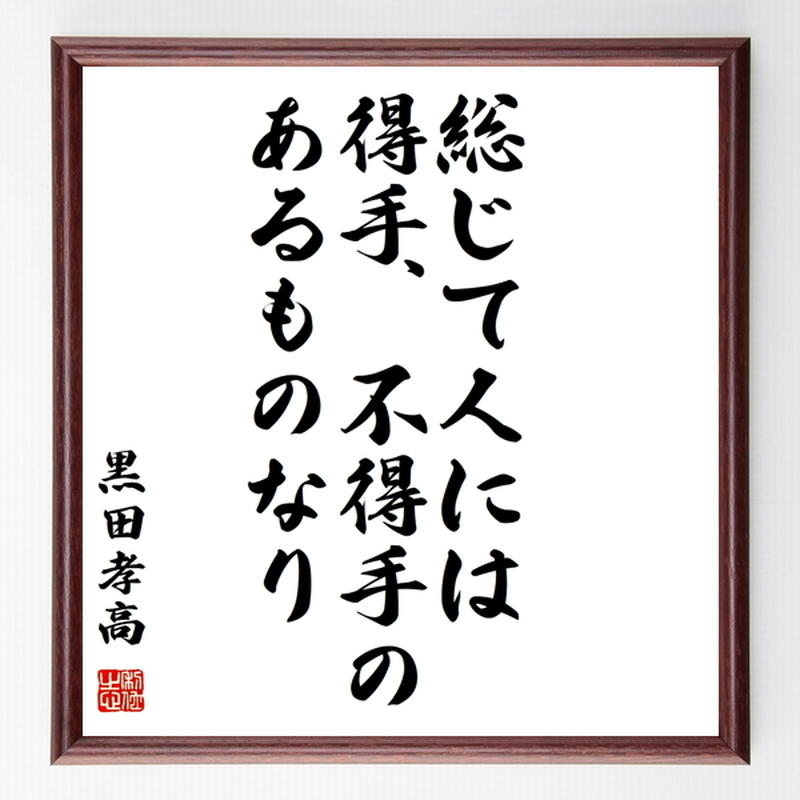 総じて人には
得手、不得手の
あるものなり
黒田孝高